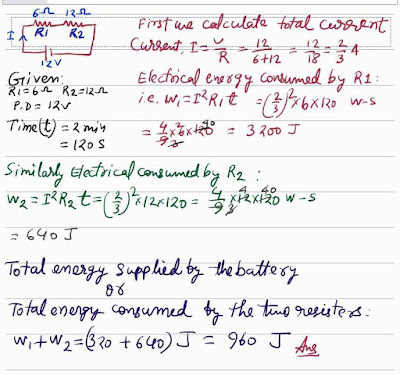 6Ω 12Ω
I R1 R2
12V
First we calculate total current
Current, I = V/R = 12/(6+12) = 12/18 = 2/3 A
Given:
R1=6Ω R2=12Ω
P.D = 12V
Time(t) = 2 min
= 120 S
Electrical energy consumed by R1:
i.e. W1 = I²R1t = (2/3)² × 6 × 120 W-S
= 4/9 × 6 × 120 = 3200 J
2 3 40
Similarly Electrical consumed by R2 :
W2 = I²R2t = (2/3)² × 12 × 120 = 4/9 × 12 × 120 W-S
3 4 40
= 640 J
Total energy supplied by the battery
or
Total energy consumed by the two resisters:
W1 + W2 = (320 + 640) J = 960 J Ans